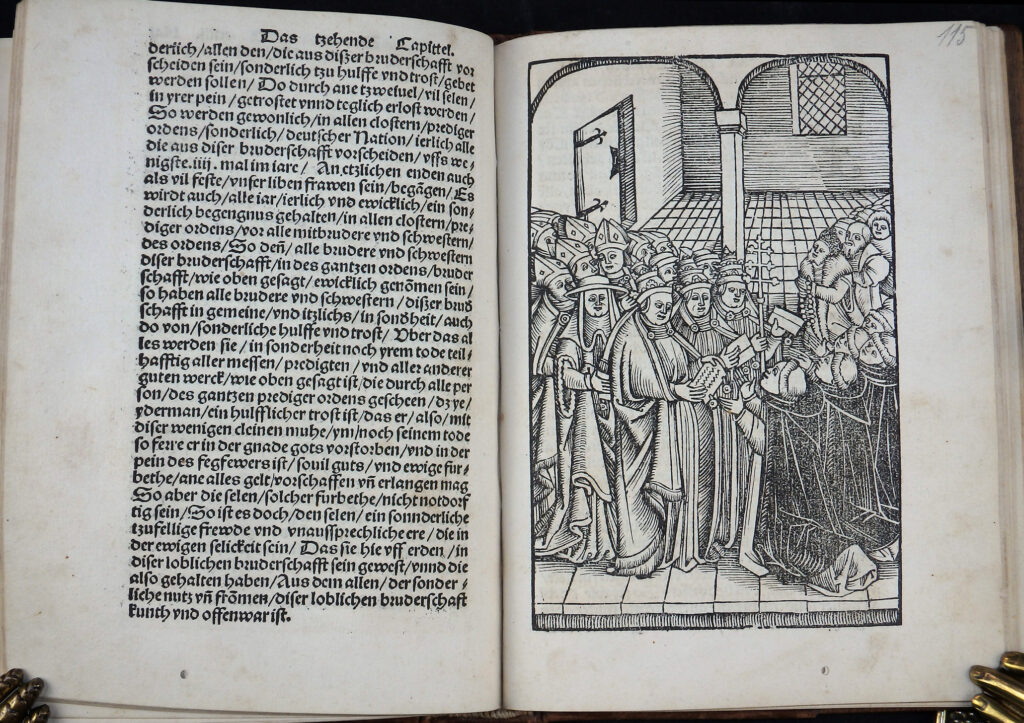 Das tzehende Capittel.
derlich/allen den/die aus diszer bruderschafft vor
scheiden sein/sonderlich tzu hulffe vnd trost/gebet
werden sollen/Do durch ane tzweiuel/vil selen/
in yrer pein/getrostet vnnd teglich erlost werden/
So werden gewonlich/in allen clostern/prediger
ordens/sonderlich/deutscher Nation/ierlich alle
die aus diser bruderschafft vorscheiden/vffs we⸗
nigste.iiii.mal im iare/ An etzlichen enden auch
als vil feste/vnser liben frawen sein/begāgen/Es
wirdt auch/alle iar/ierlich vnd ewicklich/ein son⸗
derlich begengnus gehalten/in allen clostern/pre⸗
diger ordens/vor alle mitbrudere vnd schwestern/
des ordens/So deñ/alle brudere vnd schwestern
diser bruderschafft/in des gantzen ordens/bruder
schafft/wie oben gesagt/ewicklich genōmen sein/
so haben alle brudere vnd schwestern/diszer brud
schafft in gemeine/vnd itzlichs/in sondheit/auch
do von/sonderliche hulffe vnd trost/ Vber das al
les werden sie/in sonderheit noch yrem tode teil⸗
hafftig aller messen/predigten/vnd aller anderer
guten werck/wie oben gesagt ist/die durch alle per
son/des gantzen prediger ordens gescheen/dz ye/
yderman/ein hulfflicher trost ist/das er/also/mit
diser wenigen cleinen muhe/ym/noch seinem tode
so ferre er in der gnade gots vorstorben/vnd in der
pein des fegfewers ist/souil guts/vnd ewige für⸗
bethe/ane alles gelt/vorschaffen vñ erlangen mag
So aber die selen/solcher fürbethe/nicht notdorf
tig sein/So ist es doch/den selen/ein sonnderliche
tzufellige frewde vnd vnaussprechliche ere/die in
der ewigen selickeit sein/ Das sie hie vff erden/in
diser loblichen bruderschafft sein gewest/vnnd die
also gehalten haben/Aus dem allen/der sonder⸗
liche nutz vñ frōmen/diser loblichen bruderschaft
kunth vnd offenwar ist.
115